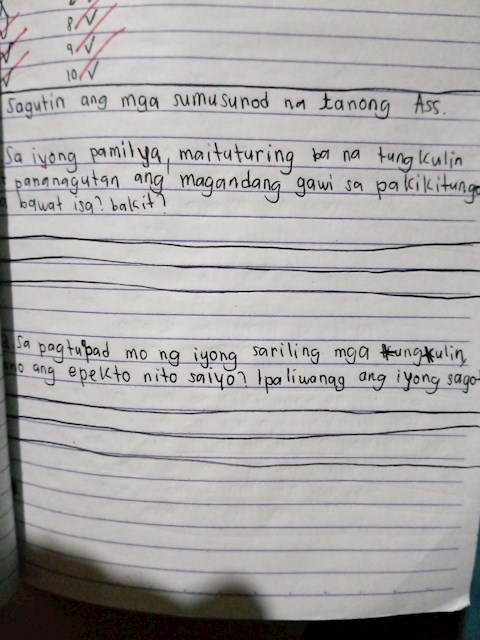 8 ✓
9 ✓
10 ✓
Sagutin ang mga sumusunod na tanong Ass.
Sa iyong pamilya, maituturing ba na tungkulin
pananagutan ang magandang gawi sa pakikitungo
bawat isa? bakit?
Sa pagtupad mo ng iyong sariling mga tungkulin,
ano ang epekto nito saiyo? Ipaliwanag ang iyong sago